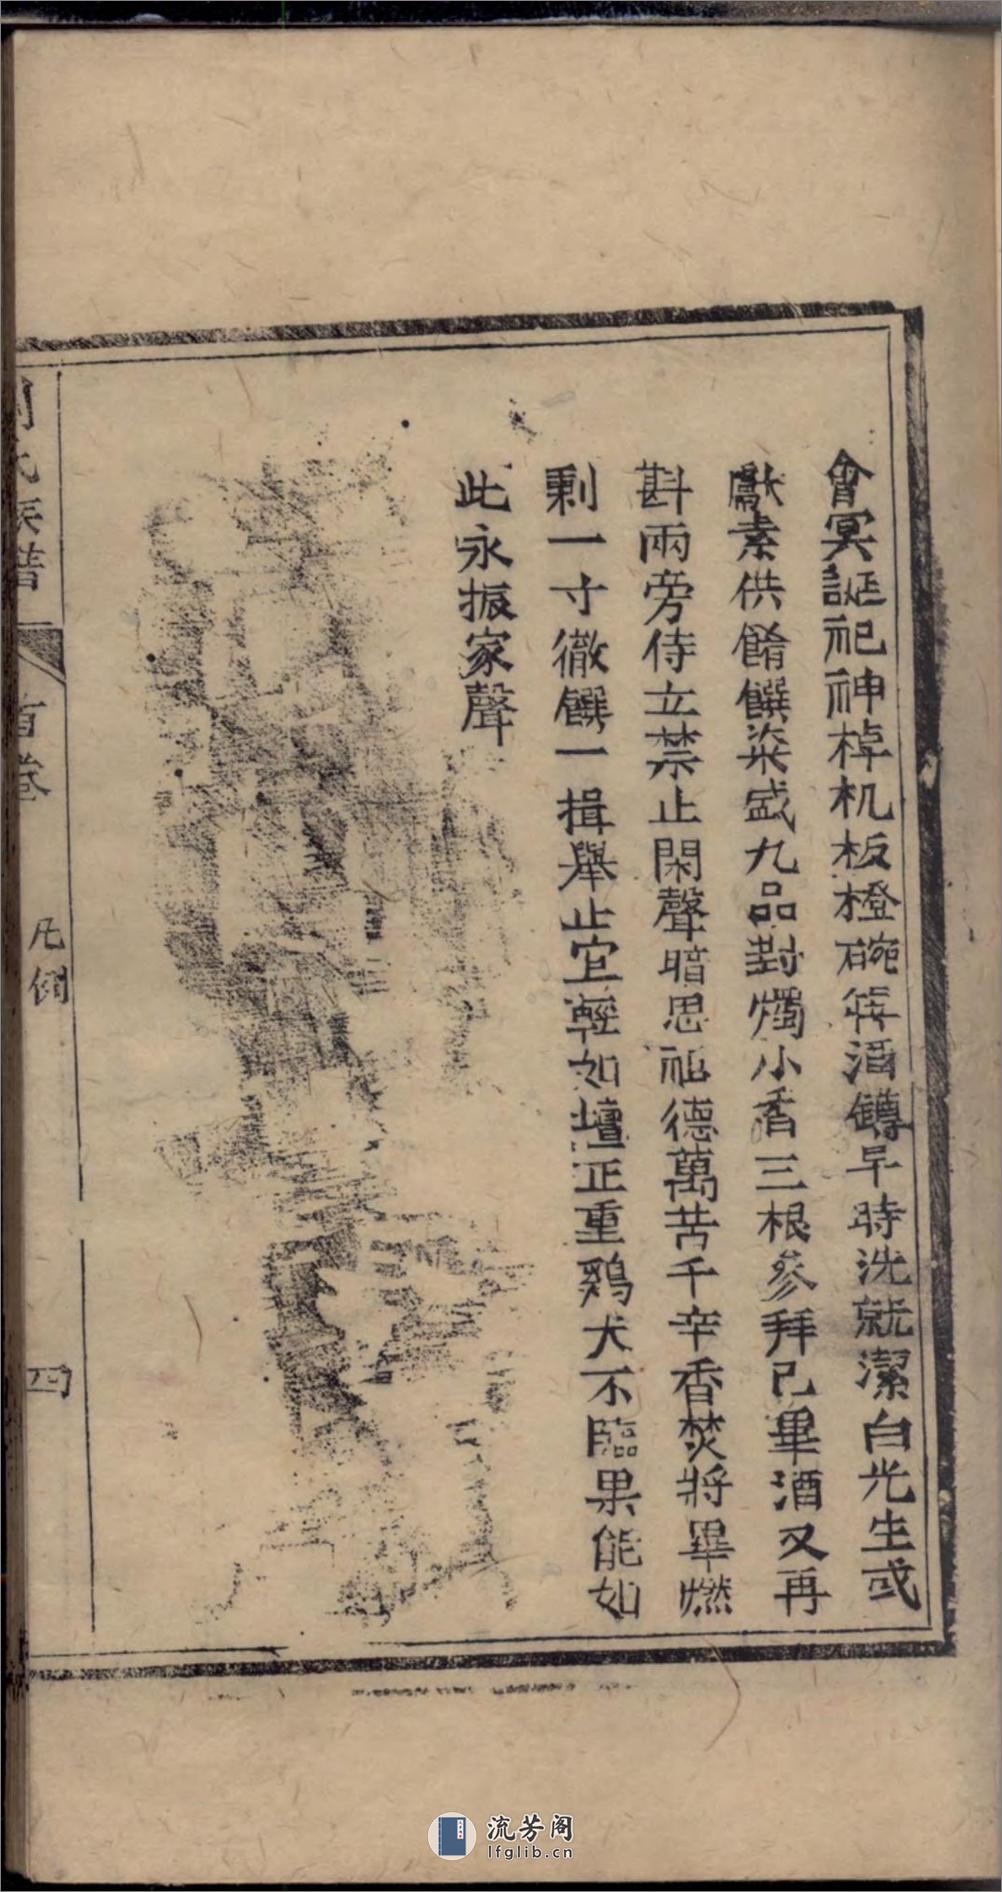 會冥誕祀神棹机板橙碗筷酒罇早時洗就潔白光生或
獻素供餚饌粢盛九品對燭小香三根參拜已畢酒又再
斟兩旁侍立禁止閑聲暗思祖德萬苦千辛香焚將畢燃
剩一寸徹饌一揖舉止宜輕如壇正重鷄犬不臨果能如
此永振家聲
氏族譜
首卷
凡例
四
流芳阁
lfglib.cn